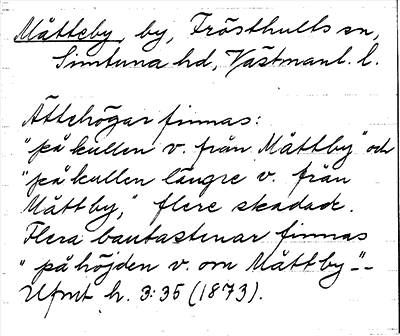 Måtteby, by, Frösthults sn,
Simtuna hd, Västmanl. l.
Ättehögar finnas:
"på kullen v. från Måttby" och
"på kullen längre v. från
Måttby," flere skadade.
Flera bautastenar finnas
"på höjden v. om Måttby".-
Ufmt h. 3:35 (1873).